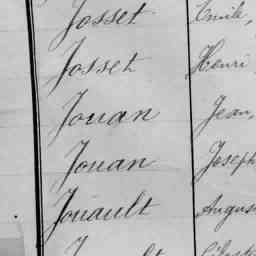 Josset Emile,
Josset Henri
Jouan Jean,
Jouan Joseph
Jouault